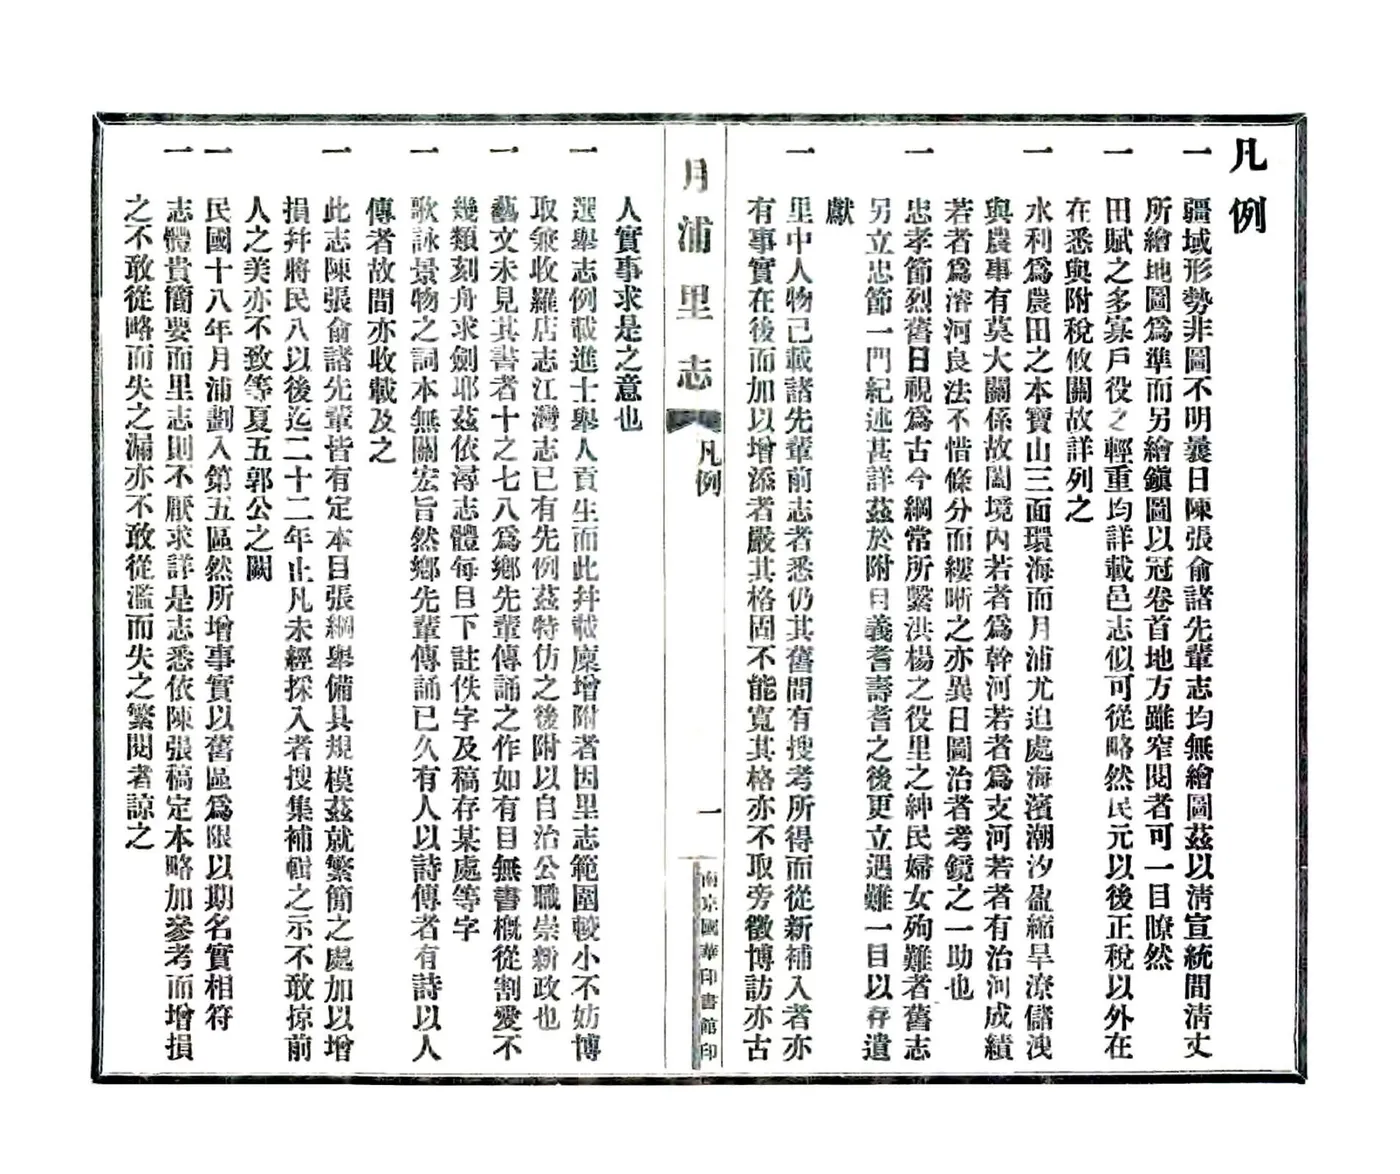 凡例
一 疆域形勢非圖不明曩日陳張俞諸先輩志均無繪圖茲以淸宣統間淸丈
所繪地圖爲準而另繪鎭圖以冠卷首地方雖窄閱者可一目瞭然
一 田賦之多寡戶役之輕重均詳載邑志似可從略然民元以後正稅以外在
在悉與附稅攸關故詳列之
一 水利爲農田之本寶山三面環海而月浦尤迫處海濱潮汐盈縮旱潦儲洩
與農事有莫大關係故闔境內若者爲幹河若者爲支河若者有治河成績
若者爲濬河良法不惜條分而縷晰之亦異日圖治者考鏡之一助也
一 忠孝節烈舊日視爲古今綱常所繫洪楊之役里之紳民婦女殉難者舊志
另立忠節一門紀述甚詳茲於附目義耆壽耆之後更立遇難一目以存遺
獻
一 里中人物已載諸先輩前志者悉仍其舊間有搜考所得而從新補入者亦
有事實在後而加以增添者嚴其格固不能寬其格亦不取旁徵博訪亦古
月浦里志 凡例 一 南京國華印書館印
人實事求是之意也
一 選舉志例載進士舉人貢生而此幷載廩增附者因里志範圍較小不妨博
取兼收羅店志江灣志已有先例茲特仿之後附以自治公職崇新政也
一 藝文未見其書者十之七八爲鄕先輩傳誦之作如有目無書槪從割愛不
幾類刻舟求劍耶茲依潯志體每目下註佚字及稿存某處等字
一 歌詠景物之詞本無關宏旨然鄕先輩傳誦已久有人以詩傳者有詩以人
傳者故間亦收載及之
一 此志陳張俞諸先輩皆有定本目張綱舉備具規模茲就繁簡之處加以增
損幷將民八以後迄二十二年止凡未經採入者搜集補輯之示不敢掠前
人之美亦不致等夏五郭公之闕
一 民國十八年月浦劃入第五區然所增事實以舊區爲限以期名實相符
一 志體貴簡要而里志則不厭求詳是志悉依陳張稿定本略加參考而增損
之不敢從略而失之漏亦不敢從濫而失之繁閱者諒之